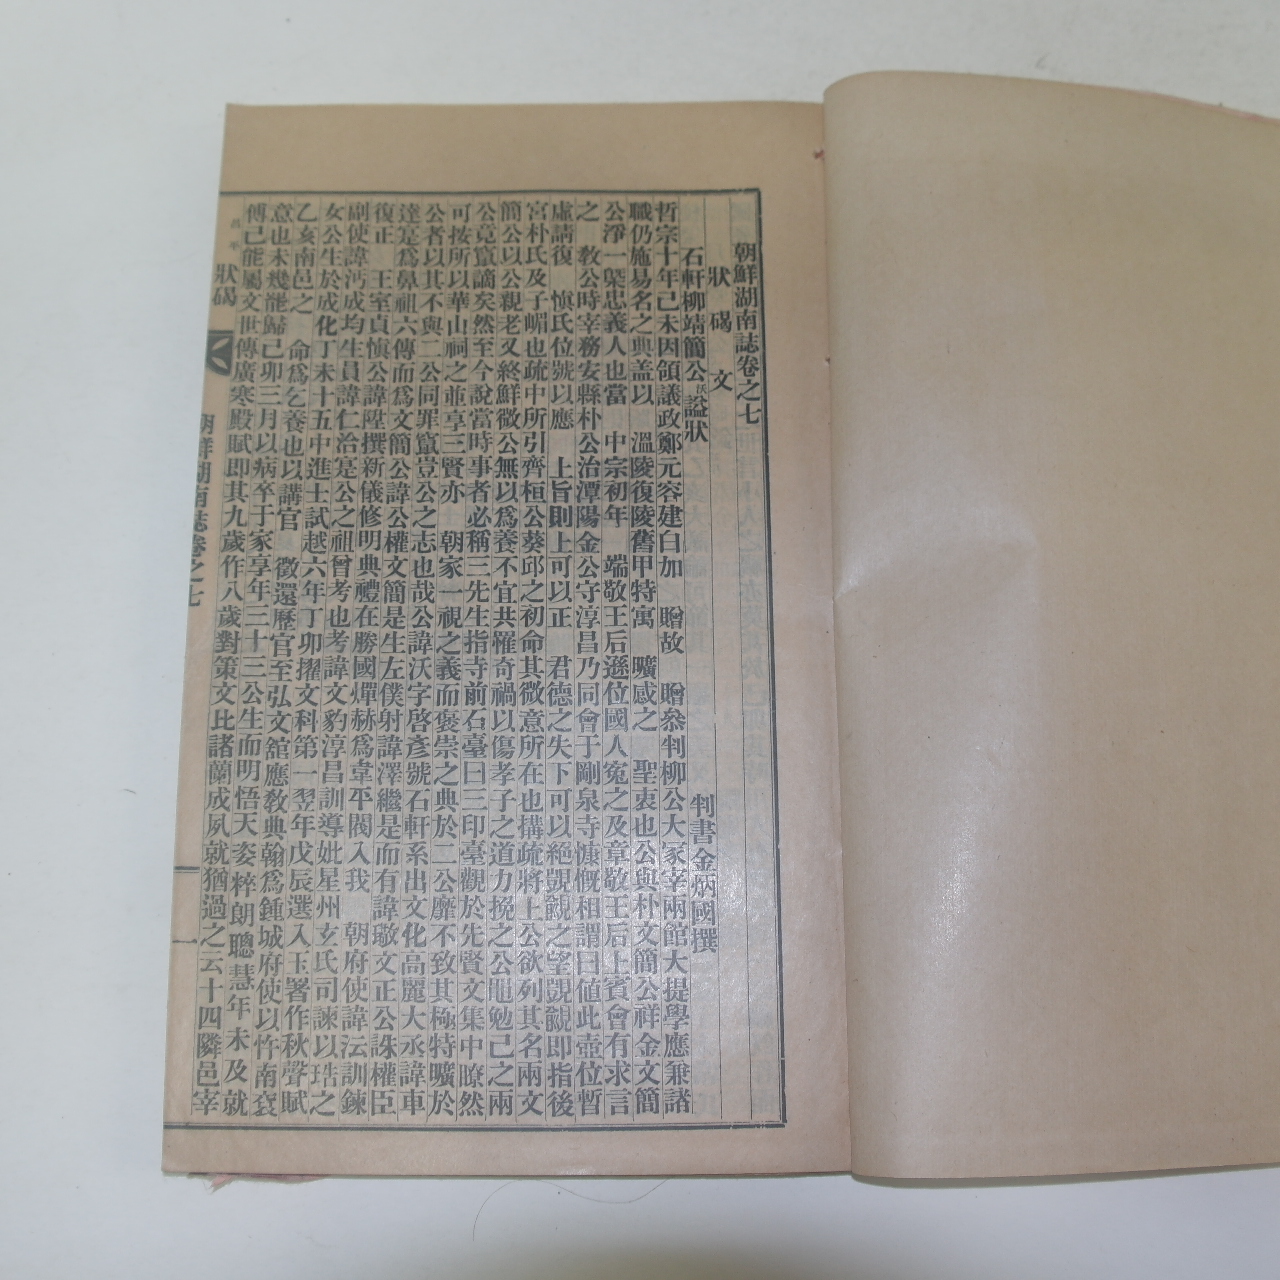 朝鮮湖南誌卷之七
狀碣文
石軒柳靖簡公沃諡狀 判書金炳國撰
哲宗十年己未因領議政鄭元容建白加 贈故 贈參判柳公大冢宰兩館大提學應兼諸
職仍施易名之典盖以 溫陵復陵舊甲特寓 曠感之 聖衷也公與朴文簡公祥金文簡
公淨一槩忠義人也當 中宗初年 端敬王后遜位國人寃之及章敬王后上賓會有求言
之 敎公時宰務安縣朴公治潭陽金公守淳昌乃同會于剛泉寺慷慨相謂曰値此壼位暫
虛請復 愼氏位號以應 上旨則上可以正 君德之失下可以絶覬覦之望覬覦即指後
宮朴氏及子嵋也疏中所引齊桓公葵邱之初命其微意所在也搆疏將上公欲列其名兩文
簡公以公親老又終鮮微公無以爲養不宜共罹奇禍以傷孝子之道力挽之公黽勉已之兩
公竟竄謫矣然至今說當時事者必稱三先生指寺前石臺曰三印臺觀於先賢文集中瞭然
可按所以華山祠之並享三賢亦 朝家一視之義而褒崇之典於二公靡不致其極特曠於
公者以其不與二公同罪竄豈公之志也哉公諱沃字啓彥號石軒系出文化高麗大丞諱車
達寔爲鼻祖六傳而爲文簡公諱公權文簡是生左僕射諱澤繼是而有諱璥文正公誅權臣
復正 王室貞愼公諱陞撰新儀修明典禮在勝國燀赫爲韋平閥入我 朝府使諱沄訓鍊
副使諱沔成均生員諱仁洽寔公之祖曾考也考諱文豹淳昌訓導妣星州玄氏司諫以琂之
女公生於成化丁未十五中進士試越六年丁卯擢文科第一翌年戊辰選入玉署作秋聲賦
乙亥南邑之 命爲乞養也以講官 徵還歷官至弘文舘應敎典翰爲鍾城府使以忤南袞
意也未幾能歸己卯三月以病卒于家享年三十三公生而明悟天姿粹朗聰慧年未及就
傅已能屬文世傳廣寒殿賦即其九歲作八歲對策文比諸蘭成夙就猶過之云十四隣邑宰
昌平 狀碣 朝鮮湖南誌卷之七 一